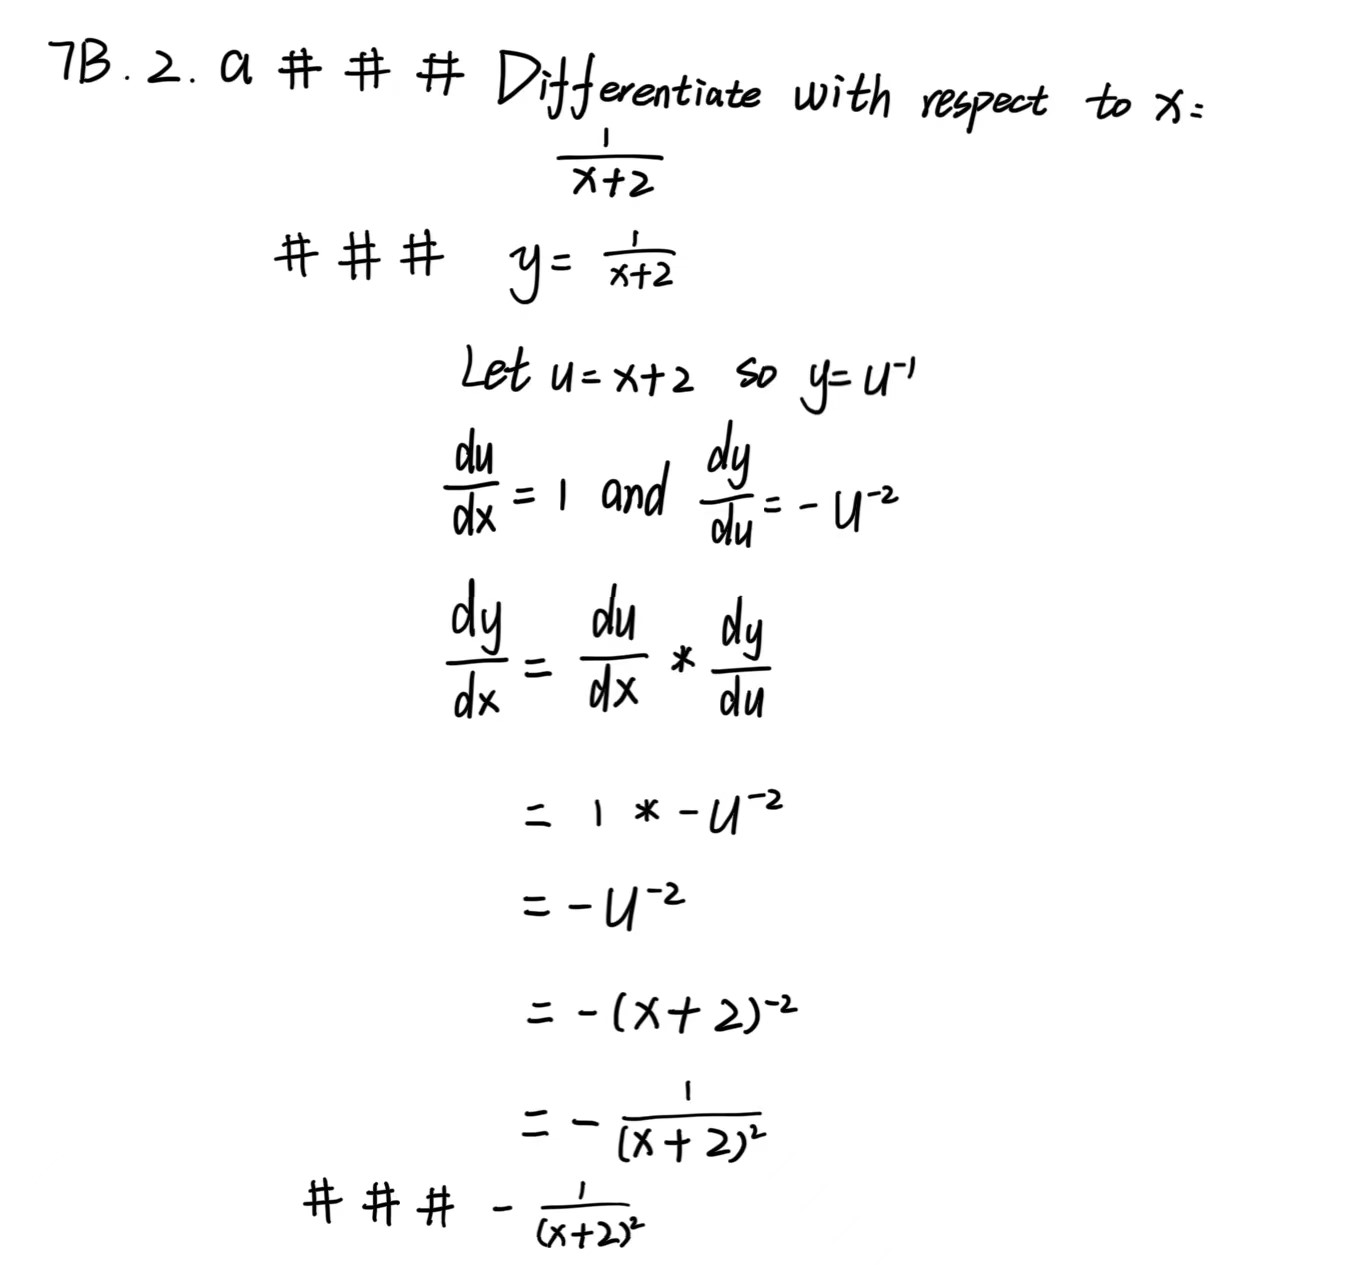 7B.2.a # # # Differentiate with respect to x:
\frac{1}{x+2}
# # # y = \frac{1}{x+2}
Let u = x+2 so y = u^{-1}
\frac{du}{dx} = 1 and \frac{dy}{du} = -u^{-2}
\frac{dy}{dx} = \frac{du}{dx} * \frac{dy}{du}
= 1 * -u^{-2}
= -u^{-2}
= -(x+2)^{-2}
= -\frac{1}{(x+2)^2}
# # # -\frac{1}{(x+2)^2}